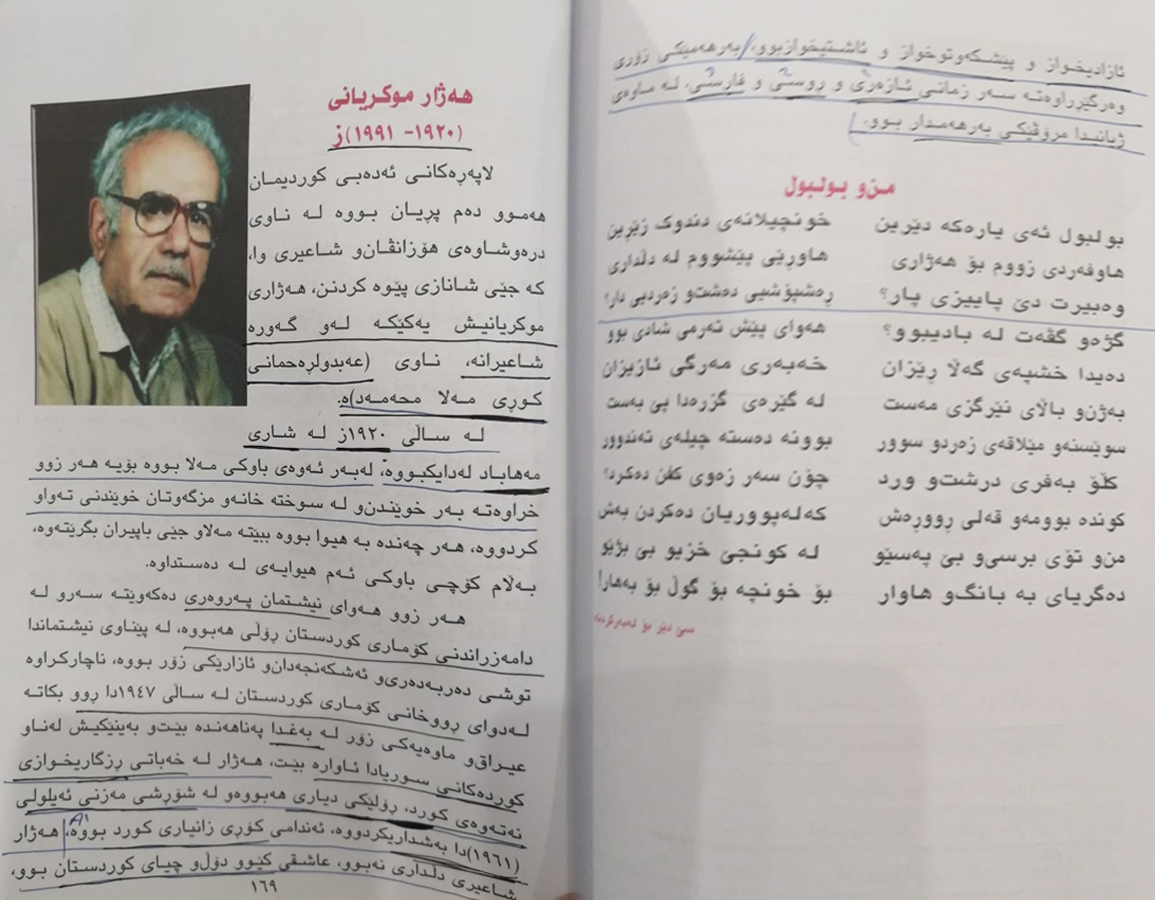 هەژار موکریانی
(١٩٢٠- ١٩٩١)ز
لاپەڕەکانی ئەدەبی کوردیمان
هەموو دەم پڕیان بووە لە ناوی
درەوشاوەی هۆزانڤان‌و شاعیری وا،
کە جێی شانازی پێوە کردنن، هەژاری
موکریانیش یەکێکە لەو گەورە
شاعیرانە، ناوی (عەبدولڕەحمانی
کوڕی مەلا محەمەد)ە.
لە ساڵی ١٩٢٠ز لە شاری
مەهاباد لەدایکبووە، لەبەر ئەوەی باوکی مەلا بووە بۆیە هەر زوو
خراوەتە بەر خوێندن‌و لە سوختە خانەو مزگەوتان خوێندنی تەواو
کردووە، هەر چەندە بە هیوا بووە ببێتە مەلاو جێی باپیران بگرێتەوە،
بەڵام کۆچی باوکی ئەم هیوایەی لە دەستداوە.
هەر زوو هەوای نیشتمان پەروەری دەکەوێتە سەرو لە
دامەزراندنی کۆماری کوردستان ڕۆڵی هەبووە، لە پێناوی نیشتماندا
توشی دەربەدەری‌و ئەشکەنجەدان‌و ئازارێکی زۆر بووە، ناچارکراوە
لەدوای ڕووخانی کۆماری کوردستان لە ساڵی ١٩٤٧دا ڕوو بکاتە
عیراق‌و ماوەیەکی زۆر لە بەغدا پەناهەندە بێت‌و بەینێکیش لەناو
کوردەکانی سوریادا ئاوارە بێت، هەژار لە خەباتی ڕزگاریخوازی
نەتەوەی کورد، ڕۆڵێکی دیاری هەبووەو لە شۆڕشی مەزنی ئەیلولی
(١٩٦١)دا بەشداریکردووە، ئەندامی کۆڕی زانیاری کورد بووە، هەژار
شاعیری دڵداری نەبوو، عاشقی کێوو دۆڵ‌و چیای کوردستان بوو،
١٦٩
ئازادیخواز و پێشکەوتوخواز و ئاشتیخوازبوو، بەرهەمێکی زۆری
وەرگێڕراوەتە سەر زمانی ئازەری و ڕوسی و فارسی، لە ماوەی
ژیانیدا مرۆڤێکی بەرهەمدار بوو.
من‌و بولبول
بولبول ئەی یارەکە دێرین خونچیلانەی دندوک زێڕین
هاوفەردی زووم بۆ هەژاری هاوڕێی پێشووم لە دڵداری
وەبیرت دێ پاییزی پار؟ ڕەشپۆشیی دەشت‌و زەردیی دار؟
گژەو گڤەت لە بادیبوو؟ هەوای پێش تەرمی شادی بوو
دەیدا خشپەی گەڵا ڕێزان خەبەری مەرگی ئازیزان
بەژن‌و باڵای نێرگزی مەست لە گێژەی گزرەدا پێ بەست
سوێسنەو مێلاقەی زەردو سوور بوونە دەستە چیلەی تەندوور
کڵۆ بەفری درشت‌و ورد چۆن سەر زەوی کفن دەکرد؟
کوندە بوومەو قەلی ڕوورەش کەلەپووریان دەکردن بەش
من‌و تۆی برسی‌و بێ پەسێو لە کونجێ خزیو بێ بژێو
دەگریای بە بانگ‌و هاوار بۆ خونچە بۆ گوڵ بۆ بەهار!
سێ دێڕ بۆ لەبەرکردنە